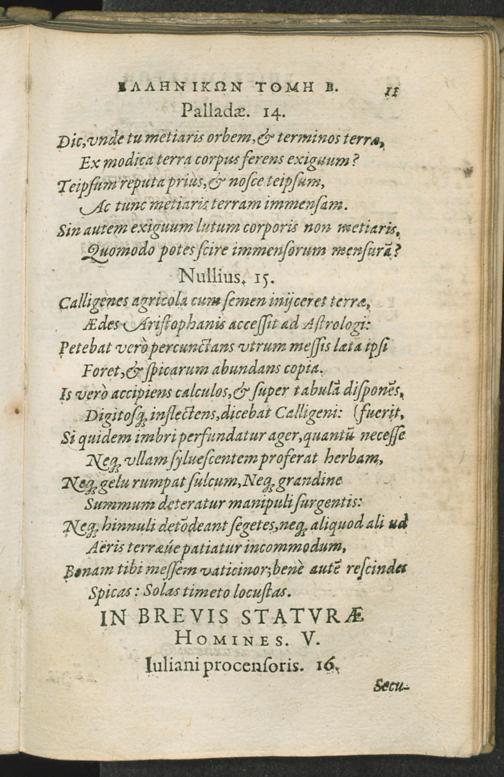 ΕΛΛΗΝΙΚΩΝ ΤΟΜΗ Β. 11
Palladæ. 14.
Dic, vnde tu metiaris orbem, & terminos terræ,
Ex modica terra corpus ferens exiguum?
Teipſum reputa prius, & noſce teipſum,
Ac tunc metiaris terram immenſam.
Sin autem exiguum lutum corporis non metiaris,
Quomodo potes ſcire immenſorum menſurã?
Nullius. 15.
Calligenes agricola cum ſemen inijceret terræ,
Ædes Ariſtophanis acceſſit ad Aſtrologi:
Petebat verò percunctans vtrum meſſis læta ipſi
Foret, & ſpicarum abundans copia.
Is verò accipiens calculos, & ſuper tabulã diſponẽs,
Digitosq́; inflectens, dicebat Calligeni: (fuerit,
Si quidem imbri perfundatur ager, quantũ neceſſe
Neq; vllam ſylueſcentem proferat herbam,
Neq; gelu rumpat ſulcum, Neq; grandine
Summum deteratur manipuli ſurgentis:
Neq; hinnuli detõdeant ſegetes, neq; aliquod ali ud
Aëris terræúe patiatur incommodum,
Bonam tibi meſſem vaticinor; benè autẽ reſcindes
Spicas: Solas timeto locuſtas.
IN BREVIS STATVRÆ
HOMINES. V.
Iuliani procenſoris. 16.
Secu-